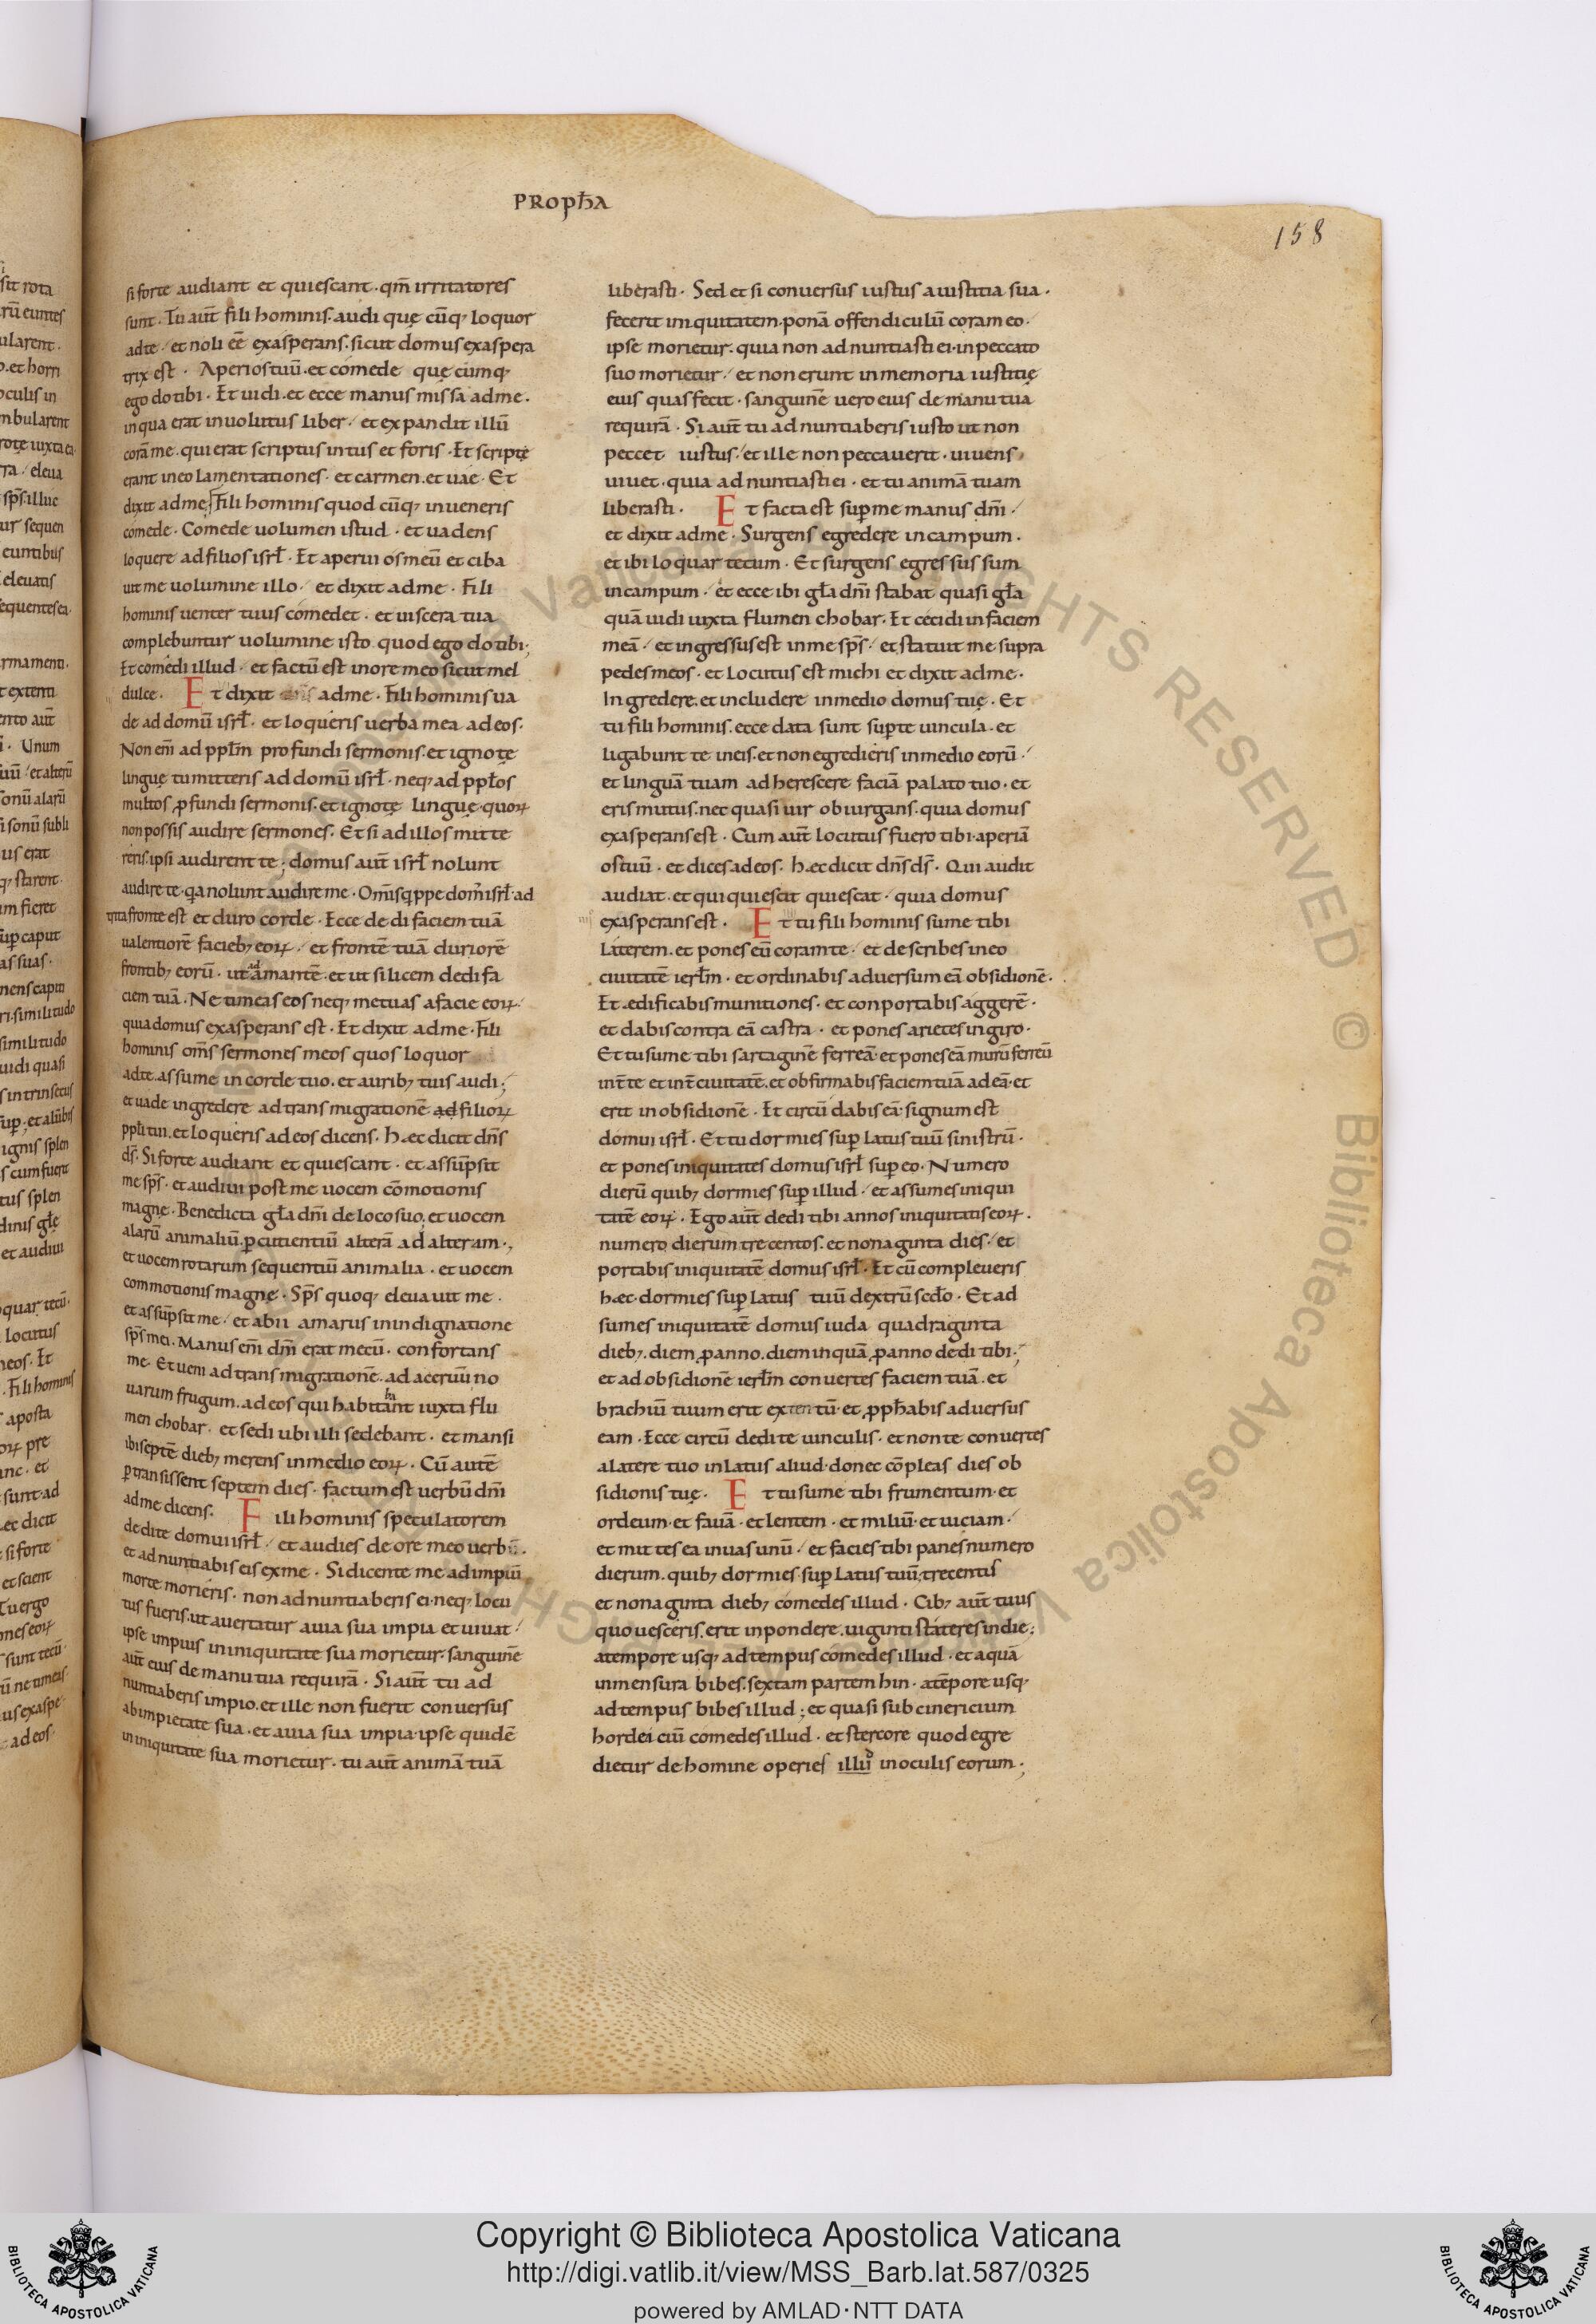 PROPHA
158
si forte audiant et quiescant · qm̄ irritatores
sunt · Tu aut̄ fili hominis · audi quę cūq; loquor
ad te / et noli eē exasperans · sicut domus exaspera
trix est · Aperi os tuū · et comede quę cumq;
ego do tibi · Et uidi · et ecce manus missa ad me ·
in qua erat inuolutus liber / et expandit illū
corā me · qui erat scriptus intus et foris · Et scriptę
erant in eo lamentationes · et carmen · et uae · Et
dixit ad me / Fili hominis quod cūq; inueneris
comede · Comede uolumen istud · et uadens
loquere ad filios isrł · Et aperui os meū et ciba
uit me uolumine illo / et dixit ad me · Fili
hominis uenter tuus comedet · et uiscera tua
complebuntur uolumine isto quod ego do tibi;
Et comedi illud · et factū est in ore meo sicut mel
dulce · Et dixit ad me · Fili hominis ua
de ad domū isrł · et loqueris uerba mea ad eos ·
Non em̄ ad pplm̄ profundi sermonis · et ignotę
linguę tu mitteris ad domū isrł · neq; ad ppłos
multos ꝓfundi sermonis · et ignotę linguę · quoꝝ
non possis audire sermones · Et si ad illos mitte
reris · ipsi audirent te ; domus aut̄ isrł nolunt
audire te · qa nolunt audire me · Om̄is qppe dom̄ isrł ad
trita fronte est et duro corde · Ecce dedi faciem tuā
ualentiorē facieb; eoꝝ / et frontē tuā duriorē
frontib; eorū · ut adamantē · et ut silicem dedi fa
ciem tuā · Ne timeas eos neq; metuas a facie eoꝝ /
quia domus exasperans est · Et dixit ad me · Fili
hominis om̄s sermones meos quos loquor
ad te · assume in corde tuo · et aurib; tuis audi ;
et uade ingredere ad transmigrationē ad filioꝝ
ppłi tui · et loqueris ad eos dicens · Hæc dicit dn̄s
ds̄ · Si forte audiant et quiescant · et assūpsit
me sps̄ · et audiui post me uocem cōmotionis
magnę · Benedicta gła dn̄i de loco suo, et uocem
alarū animaliū · ꝑcutientiū alterā ad alteram ·,
et uocem rotarum sequentiū animalia · et uocem
commotionis magnę · Sps̄ quoq; eleuauit me ·
et assūpsit me / et abii amarus in indignatione
sps̄ mei · Manus em̄ dn̄i erat mecū · confortans
me · Et ueni ad transmigrationē · ad aceruū no
uarum frugum · ad eos qui habitabant iuxta flu
men chobar · et sedi ubi illi sedebant · et mansi
ibi septē dieb; merens in medio eoꝝ · Cū autē
ꝑtransissent septem dies · factum est uerbū dn̄i
ad me dicens · Fili hominis speculatorem
dedi te domui isrł / et audies de ore meo uerbū ·
et adnuntiabis eis ex me · Si dicente me ad impiū
morte morieris · non adnuntiaberis ei · neq; locu
tus fueris · ut auertatur a uia sua impia et uiuat /
ipse impius in iniquitate sua morietur · sanguinē
aut̄ eius de manu tua requirā · Si aut̄ tu ad
nuntiaberis impio · et ille non fuerit conuersus
ab impietate sua · et a uia sua impia · ipse quidē
in iniquitate sua morietur · tu aut̄ animā tuā
liberasti · Sed et si conuersus iustus a iustitia sua ·
fecerit iniquitatem · ponā offendiculū coram eo ·
ipse morietur · quia non adnuntiasti ei · in peccato
suo morietur / et non erunt in memoria iustitię
eius quas fecit · sanguinē uero eius de manu tua
requirā · Si aut̄ tu adnuntiaberis iusto ut non
peccet iustus / et ille non peccauerit · uiuens
uiuet · quia adnuntiasti ei · et tu animā tuam
liberasti · Et facta est suꝑ me manus dn̄i /
et dixit ad me · Surgens egredere in campum ·
et ibi loquar tecum · Et surgens egressus sum
in campum / et ecce ibi gła dn̄i stabat quasi gła
quā uidi iuxta flumen chobar · Et cecidi in faciem
meā / et ingressus est in me sps̄ / et statuit me supra
pedes meos · et locutus est michi et dixit ad me ·
Ingredere · et includere in medio domus tuę · Et
tu fili hominis · ecce data sunt suꝑ te uincula · et
ligabunt te in eis · et non egredieris in medio eorū /
et linguā tuam adherescere faciā palato tuo · et
eris mutus · nec quasi uir obiurgans · quia domus
exasperans est · Cum aut̄ locutus fuero tibi · aperiā
os tuū · et dices ad eos · hæc dicit dn̄s ds̄ · Qui audit
audiat · et qui quiescit quiescat · quia domus
exasperans est · Et tu fili hominis sume tibi
laterem · et pones eū coram te / et describes in eo
ciuitatē ierłm · et ordinabis aduersum eā obsidionē ·
Et ædificabis munitiones · et conportabis aggerē ·
et dabis contra eā castra · et pones arietes in giro ·
Et tu sume tibi sartaginē ferreā · et pones eā murū ferreū
int̄ te et int̄ ciuitatē · et obfirmabis faciem tuā ad eā · et
erit in obsidionē · Et circūdabis eā · signum est
domui isrł · Et tu dormies suꝑ latus tuū sinistrū ·
et pones iniquitates domus isrł suꝑ eo · Numero
dierū quib; dormies suꝑ illud / et assumes iniqui
tatē eoꝝ · Ego aut̄ dedi tibi annos iniquitatis eoꝝ ·
numero dierum trecentos · et nonaginta dies / et
portabis iniquitatē domus isrł · Et cū compleueris
hæc · dormies suꝑ latus tuū dextrū scd̄o · Et ad
sumes iniquitatē domus iuda quadraginta
dieb; · diem ꝓ anno · diem inquā ꝓ anno dedi tibi ;
et ad obsidionē ierłm conuertes faciem tuā · et
brachiū tuum erit extentū · et ꝓpħabis aduersus
eam · Ecce circūdedi te uinculis · et non te conuertes
a latere tuo in latus aliud · donec cōpleas dies ob
sidionis tuę · Et tu sume tibi frumentum · et
ordeum · et fauā · et lentem · et miliū · et uiciam /
et mittes ea in uas unū / et facies tibi panes numero
dierum · quib; dormies suꝑ latus tuū ; trecentis
et nonaginta dieb; comedes illud · Cib; aut̄ tuus
quo uesceris · erit in pondere · uiginti stateres in die ;
a tempore usq; ad tempus comedes illud · et aquā
in mensura bibes · sextam partem hin · a tēpore usq;
ad tempus bibes illud ; et quasi subcinericium
hordeiciū comedes illud · et stercore quod egre
dietur de homine operies illud in oculis eorum ;
Copyright © Biblioteca Apostolica Vaticana
http://digi.vatlib.it/view/MSS_Barb.lat.587/0325
powered by AMLAD · NTT DATA
BIBLIOTECA APOSTOLICA VATICANA
BIBLIOTECA APOSTOLICA VATICANA